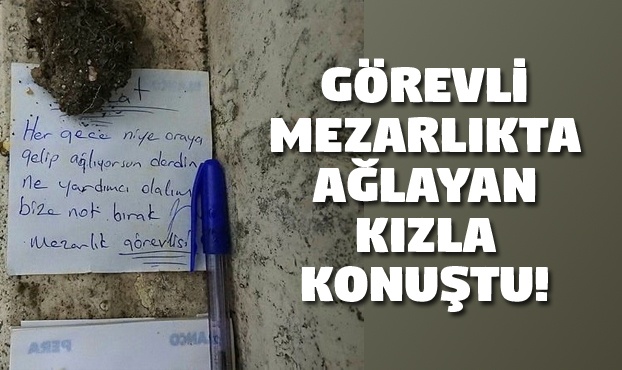 Her gece niye oraya
gelip ağlıyorsun derdin
ne yardımcı olalım
bize not bırak
mezarlık görevlisi
PERA
GÖREVLİ
MEZARLIKTA
AĞLAYAN
KIZLA
KONUŞTU!